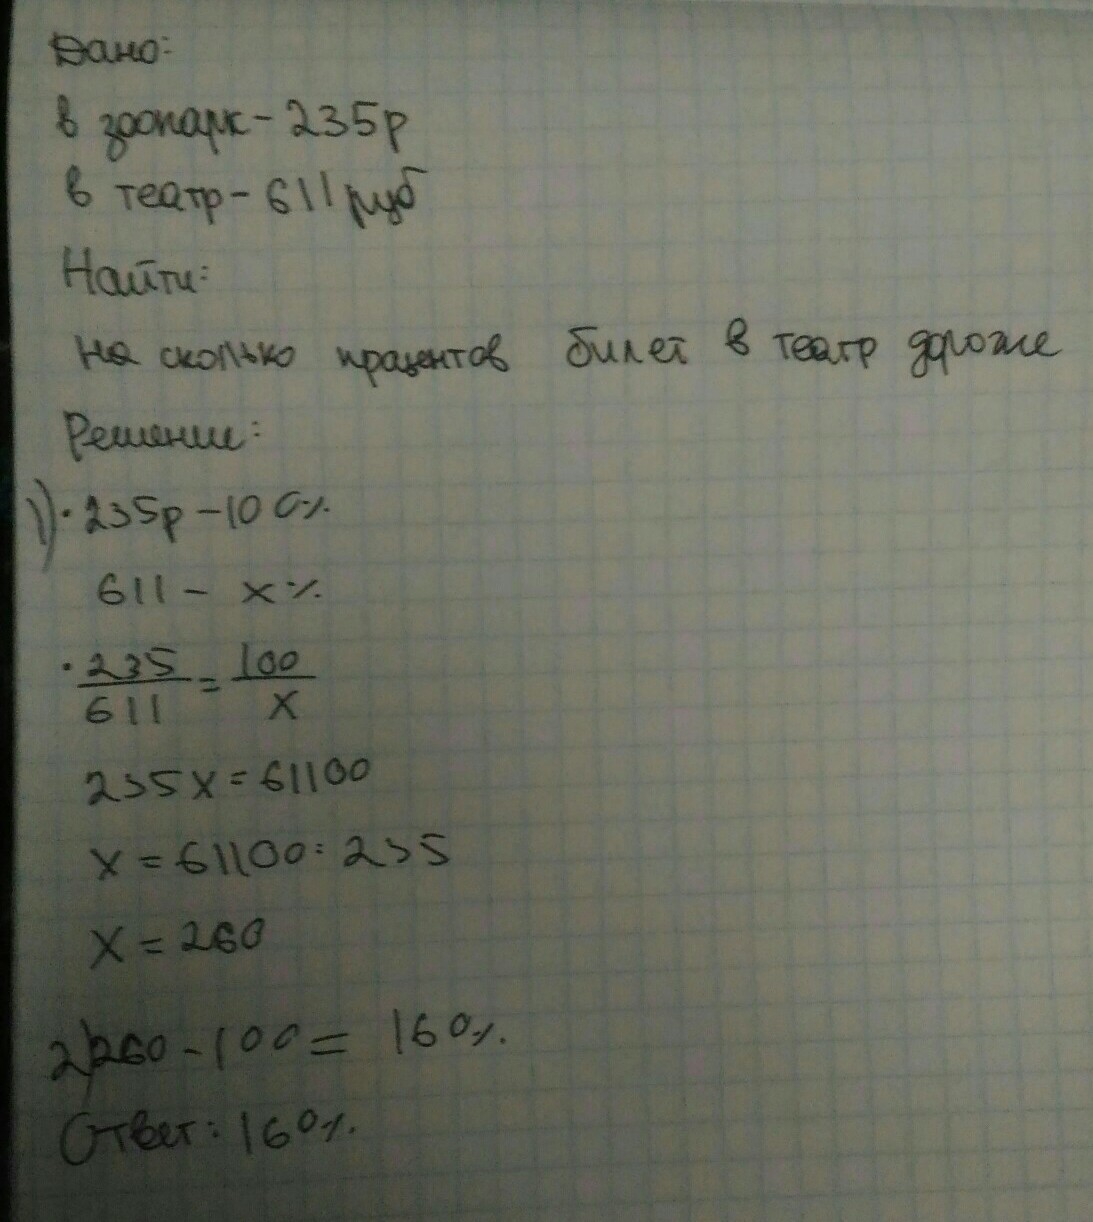 Дано:
в зоопарк - 235р
в театр - 611 руб
Найти:
на сколько працентов билет в театр дороже
Решение:
1) · 235р - 100%
611 - x%
· 235/611 = 100/x
235x = 61100
x = 61100 : 235
x = 260
2) 260 - 100 = 160%.
Ответ: 160%.